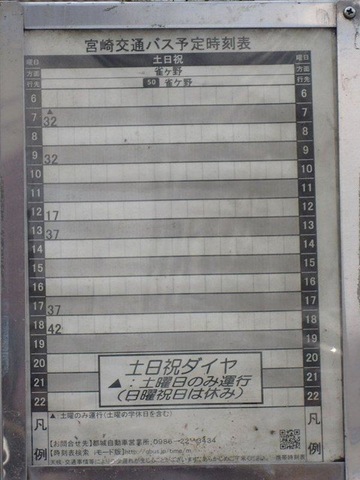 宮崎交通バス予定時刻表
曜日 土日祝 曜日
方面 雀ケ野 方面
行先 50 雀ケ野 行先
6 6
▲
7 32 7
8 8
9 32 9
10 10
11 11
12 17 12
13 37 13
14 14
15 15
16 16
17 37 17
18 42 18
19 19
20 20
21 21
22 22
土日祝ダイヤ
▲:土曜日のみ運行
(日曜祝日は休み)
凡例 凡例
▲:土曜のみ運行(土曜の学休日を含む)
【お問合せ先】都城自動車営業所,0986-
【時刻表検索 iモード版】http://qbus.jp/time/m
携帯時刻表